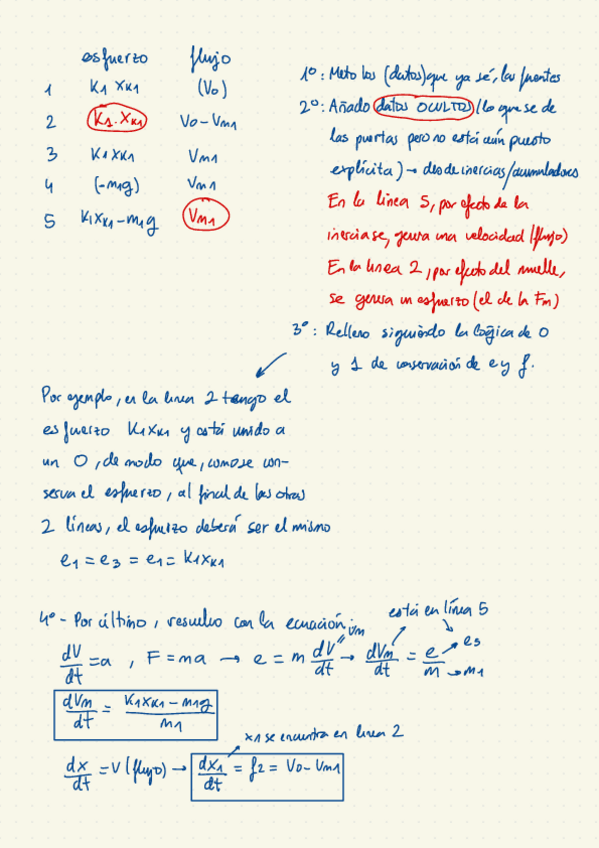 esfuerzo flujo
1 K1 XK1 (V0)
2 K1.XK1 V0-Vm1
3 K1XK1 Vm1
4 (-m1g) Vm1
5 K1XK1-m1g Vm1
1º: Meto los (datos) que ya sé, las fuentes
2º: Añado datos OCULTOS (lo que se de
las puertas pero no está aún puesto
explícita) → desde inercias/acumuladores
En la linea 5, por efecto de la
inercia se, genera una velocidad (flujo)
En la linea 2, por efecto del muelle,
se genera un esfuerzo (el de la Fm)
3º: Relleno siguiendo la lógica de 0
y 1 de conservación de e y f.
Por ejemplo, en la linea 2 tengo el
esfuerzo K1XK1 y está unido a
un 0, de modo que, como se con-
serva el esfuerzo, al final de las otras
2 líneas, el esfuerzo deberá ser el mismo
e1 = e3 = e1 = K1XK1
4º - Por último, resuelvo con la ecuación: está en línea 5
dV/dt = a , F = ma → e = m dV/dt "Vm → dVm/dt = e/m → e5 → m1
dVm/dt = K1XK1-m1g/m1
x1 se encuentra en linea 2
dx/dt = V (flujo) → dx1/dt = f2 = V0-Vm1